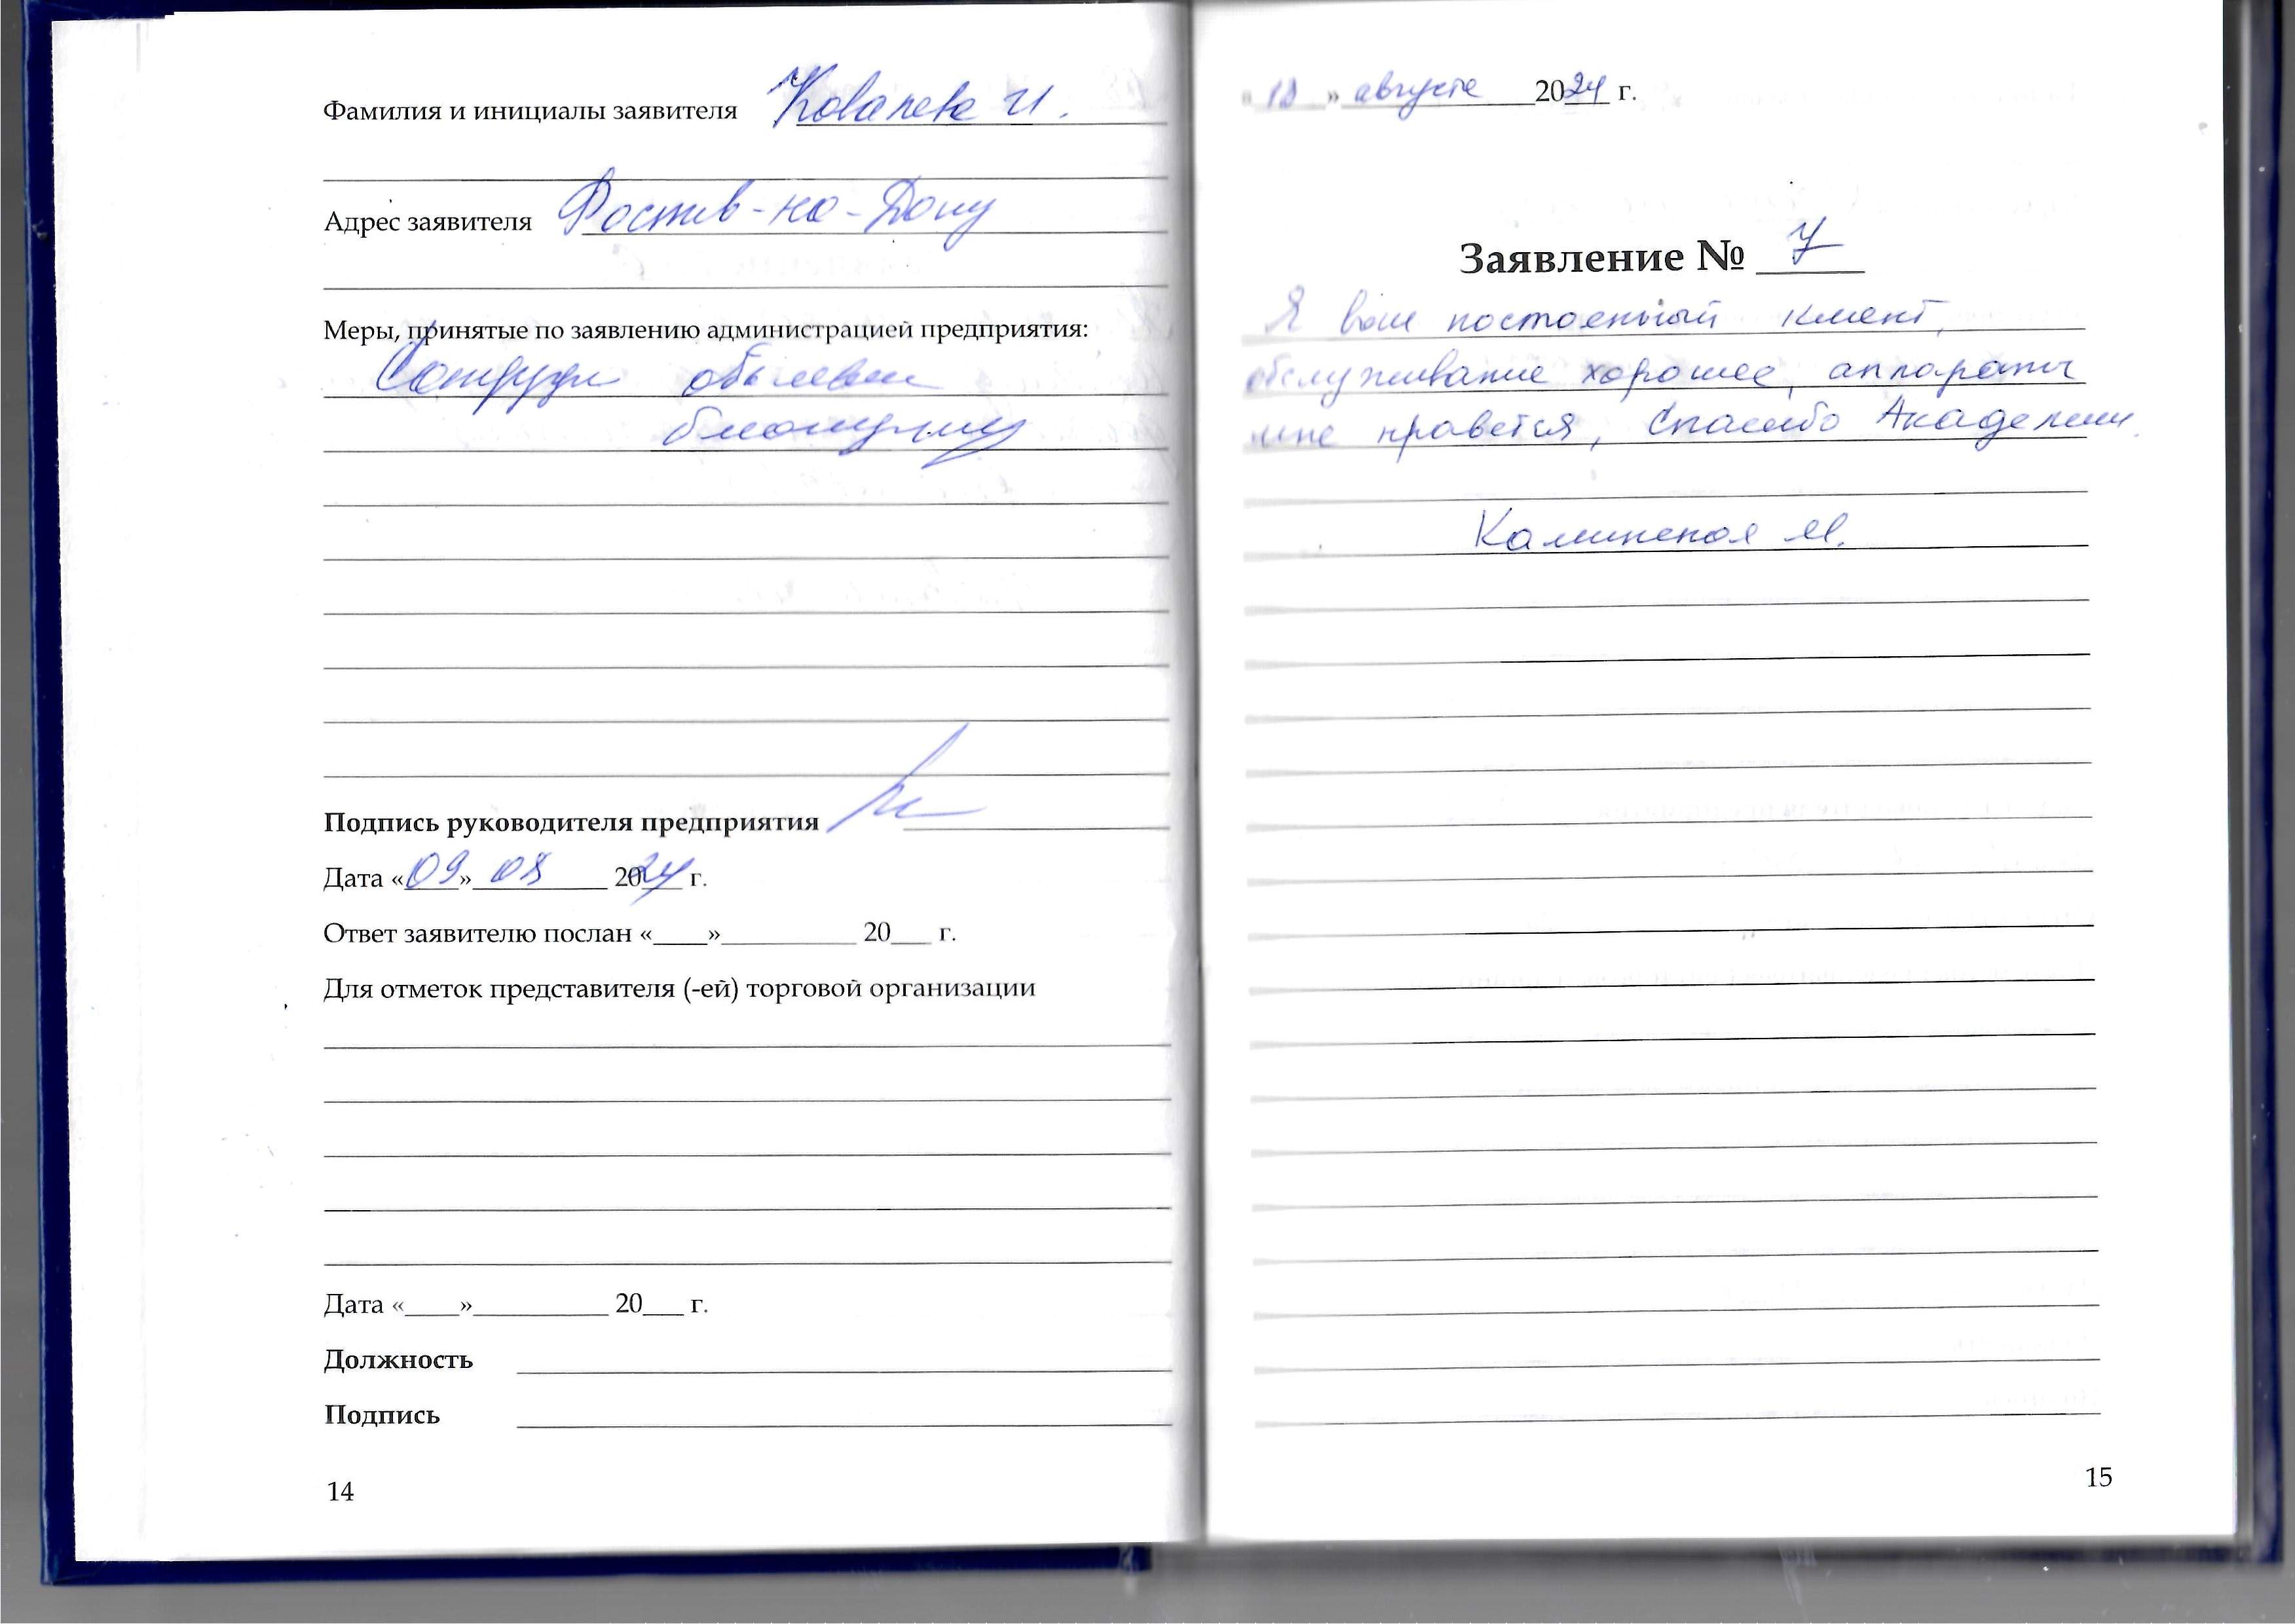 Фамилия и инициалы заявителя Ковалева И.
Адрес заявителя Ростов-на-Дону
Меры, принятые по заявлению администрацией предприятия:
объявлен
Подпись руководителя предприятия
Дата «09» 08 2024 г.
Ответ заявителю послан «____»__________ 20___ г.
Для отметок представителя (-ей) торговой организации
Дата «____»__________ 20___ г.
Должность
Подпись
14
» августа 2024 г.
Заявление № 7
Я ваш постоенный клиент,
обслуживание хорошее, аппараты
мне нравется, Спасибо Академии
Калинская М.
15